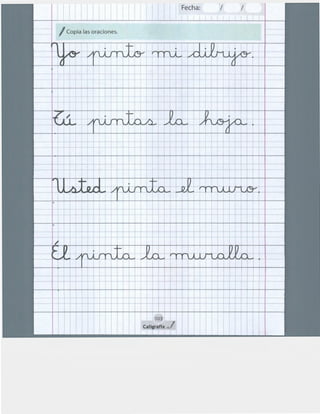 Fecha: / /
Copia las oraciones.
Yo pinto mi dibujo.
Tú pintas la hoja.
Usted pinta el muro.
Él pinta la muralla.
Caligrafix